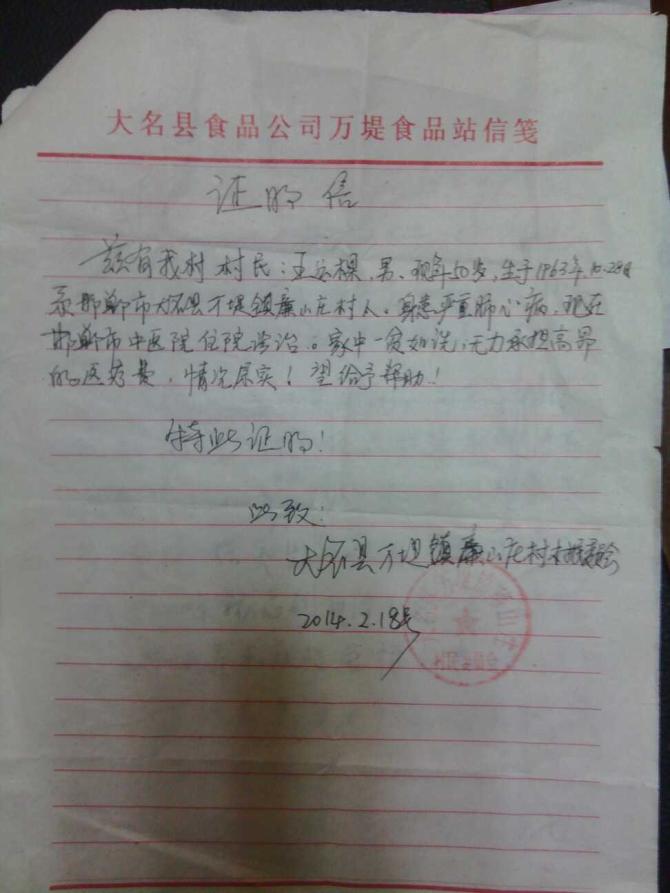 大名县食品公司万堤食品站信笺
证明信
兹有我村村民:王 棵,男、现年50岁,生于1963年10.28日
系邯郸市大名县万堤镇廉山庄村人。身患严重肺心病,现在
邯郸市中医院住院诊治。家中一贫如洗,无力承担高昂
的医药费,情况属实!望给予帮助!
特此证明!
此致:
大名县万堤镇廉山庄村村民委员会
2014.2.18号
村民委员会